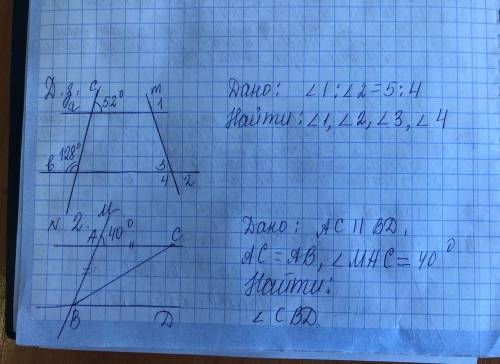 Д.з.
C
52°
m
1
a
128°
в
3
4
2
Дано: ∠1:∠2=5:4
Найти: ∠1, ∠2, ∠3, ∠4
N 2.
M
A
40°
C
B
D
Дано: AC || BD,
AC = AB, ∠MAC = 40°
Найти:
∠CBD.